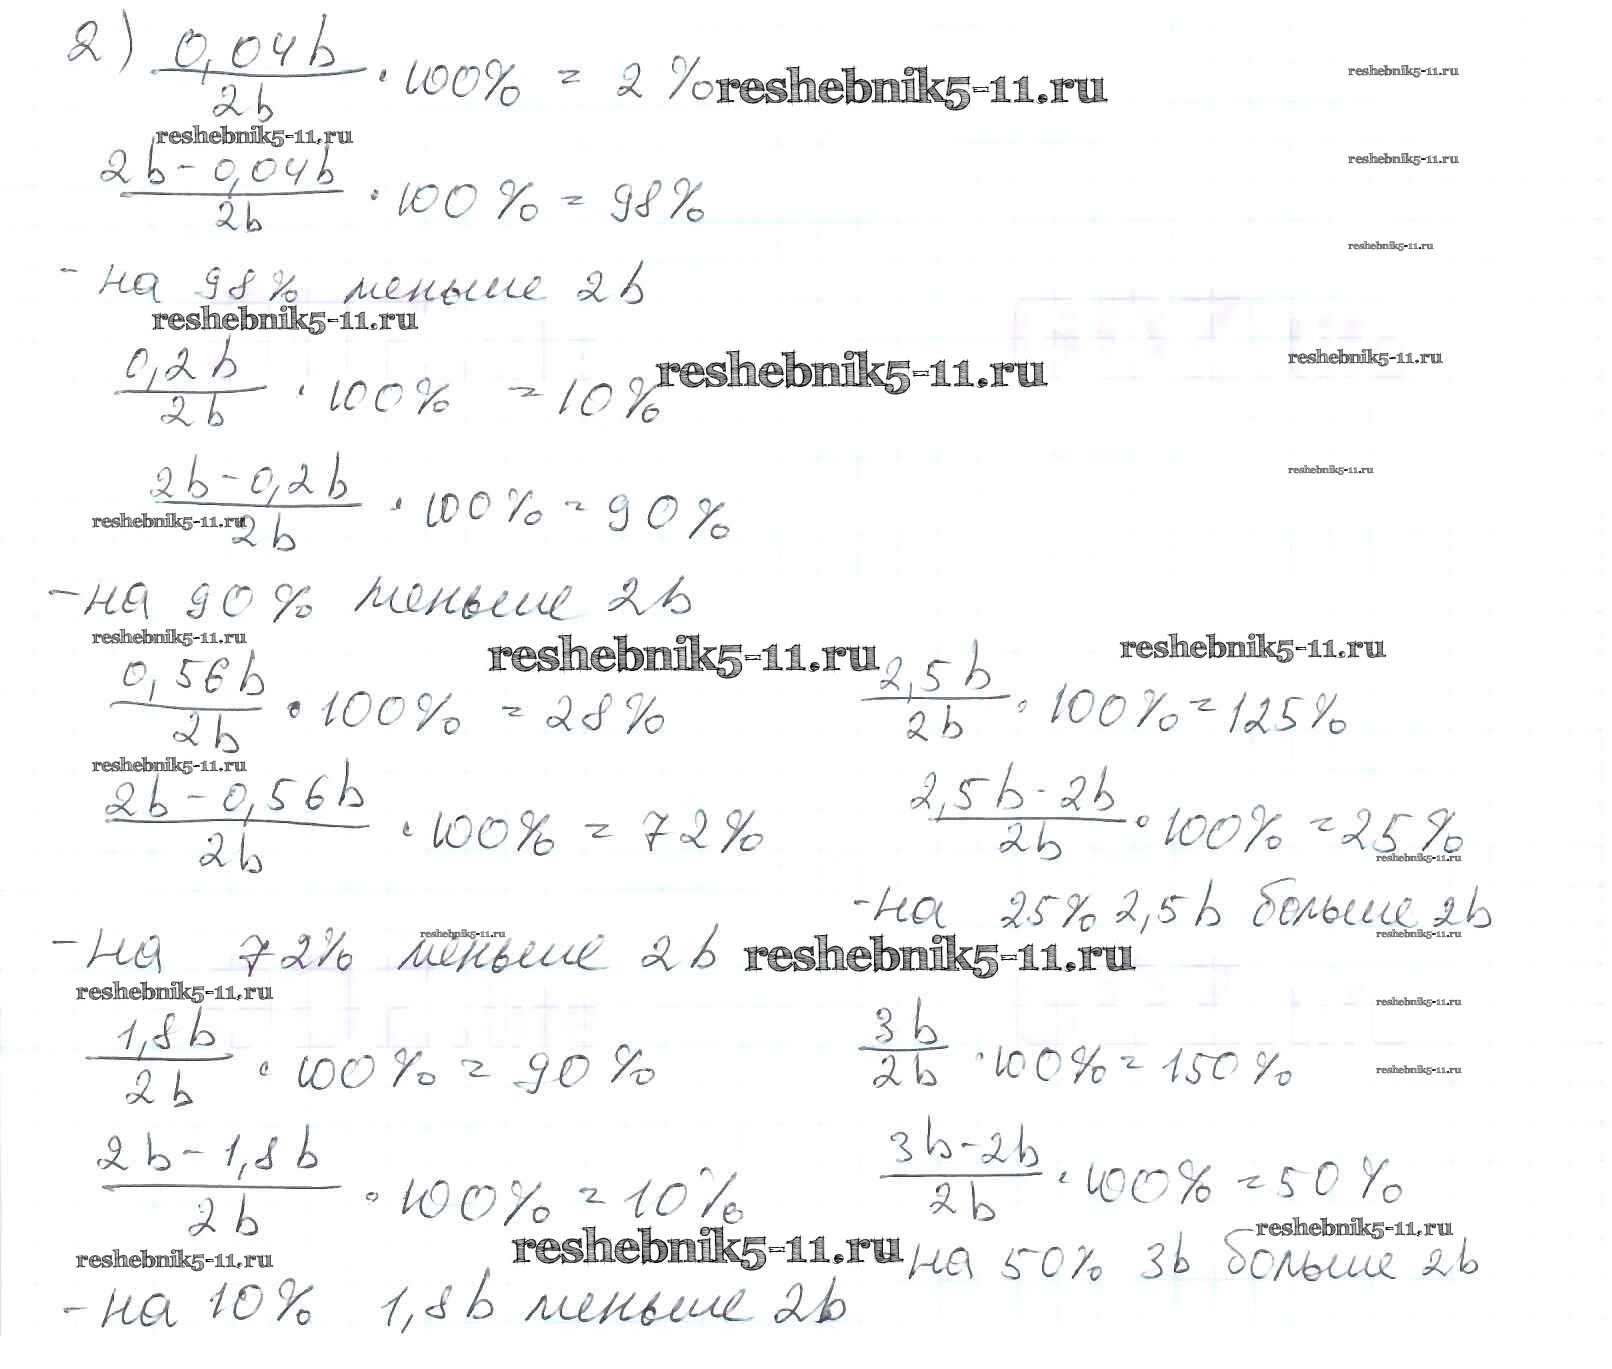 2) 0,04b / 2b · 100% = 2% reshebnik5-11.ru
reshebnik5-11.ru
reshebnik5-11.ru
2b - 0,04b / 2b · 100% = 98%
reshebnik5-11.ru
reshebnik5-11.ru
- на 98% меньше 2b
reshebnik5-11.ru
0,2b / 2b · 100% = 10%
reshebnik5-11.ru
reshebnik5-11.ru
2b - 0,2b / 2b · 100% = 90%
reshebnik5-11.ru
reshebnik5-11.ru
- на 90% меньше 2b
reshebnik5-11.ru
reshebnik5-11.ru
reshebnik5-11.ru
0,56b / 2b · 100% = 28%
reshebnik5-11.ru
2b - 0,56b / 2b · 100% = 72%
- на 72% меньше 2b
reshebnik5-11.ru
reshebnik5-11.ru
reshebnik5-11.ru
1,8b / 2b · 100% = 90%
2b - 1,8b / 2b · 100% = 10%
reshebnik5-11.ru
reshebnik5-11.ru
- на 10% 1,8b меньше 2b
2,5b / 2b · 100% = 125%
2,5b - 2b / 2b · 100% = 25%
reshebnik5-11.ru
- на 25% 2,5b больше 2b
reshebnik5-11.ru
reshebnik5-11.ru
3b / 2b · 100% = 150%
reshebnik5-11.ru
3b - 2b / 2b · 100% = 50%
reshebnik5-11.ru
на 50% 3b больше 2b